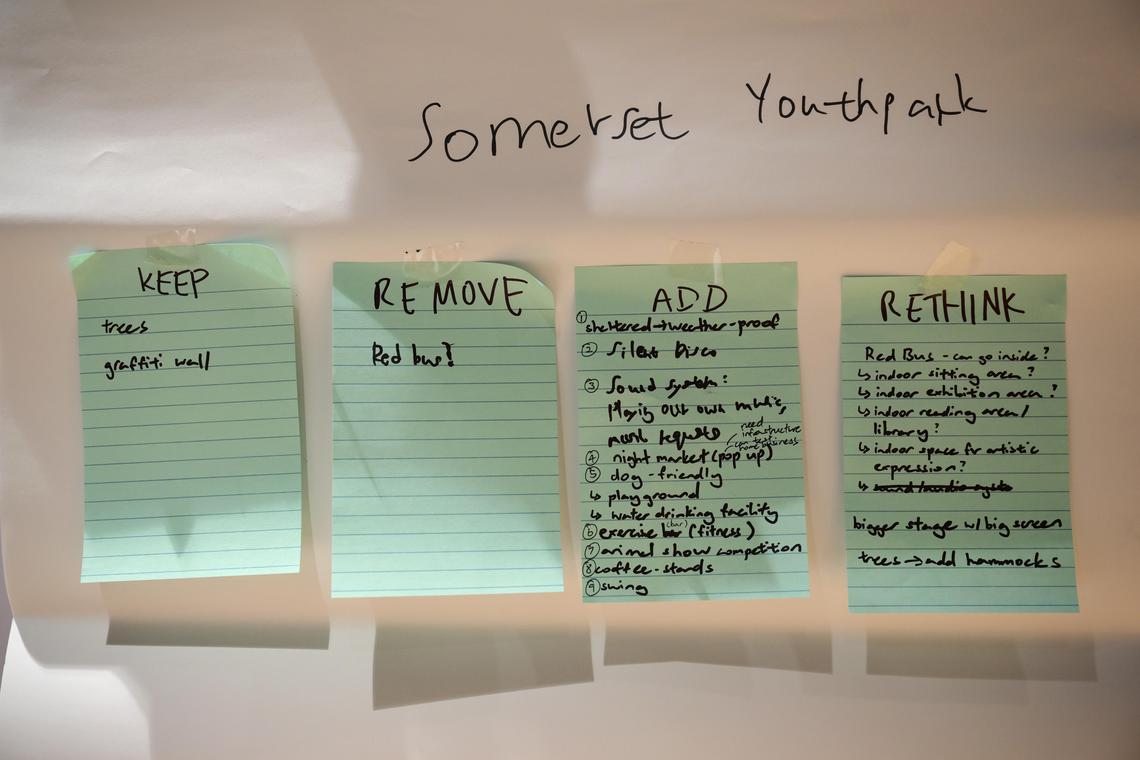 Somerset Youthpark
KEEP
trees
graffiti wall
REMOVE
Red bus?
ADD
① sheltered → weather-proof
② Silent Disco
③ Sound system:
Playing our own music,
music requests
need
infrastructure
home business
④ night market (pop up)
⑤ dog-friendly
↳ playground
↳ water drinking facility
⑥ exercise bar (bar) (fitness)
⑦ animal show competition
⑧ coffee-stands
⑨ swing
RETHINK
Red Bus - can go inside?
↳ indoor sitting area?
↳ indoor exhibition area?
↳ indoor reading area/
library?
↳ indoor space for artistic
expression?
↳ sound/audio syste
bigger stage w/ big screen
trees → add hammocks